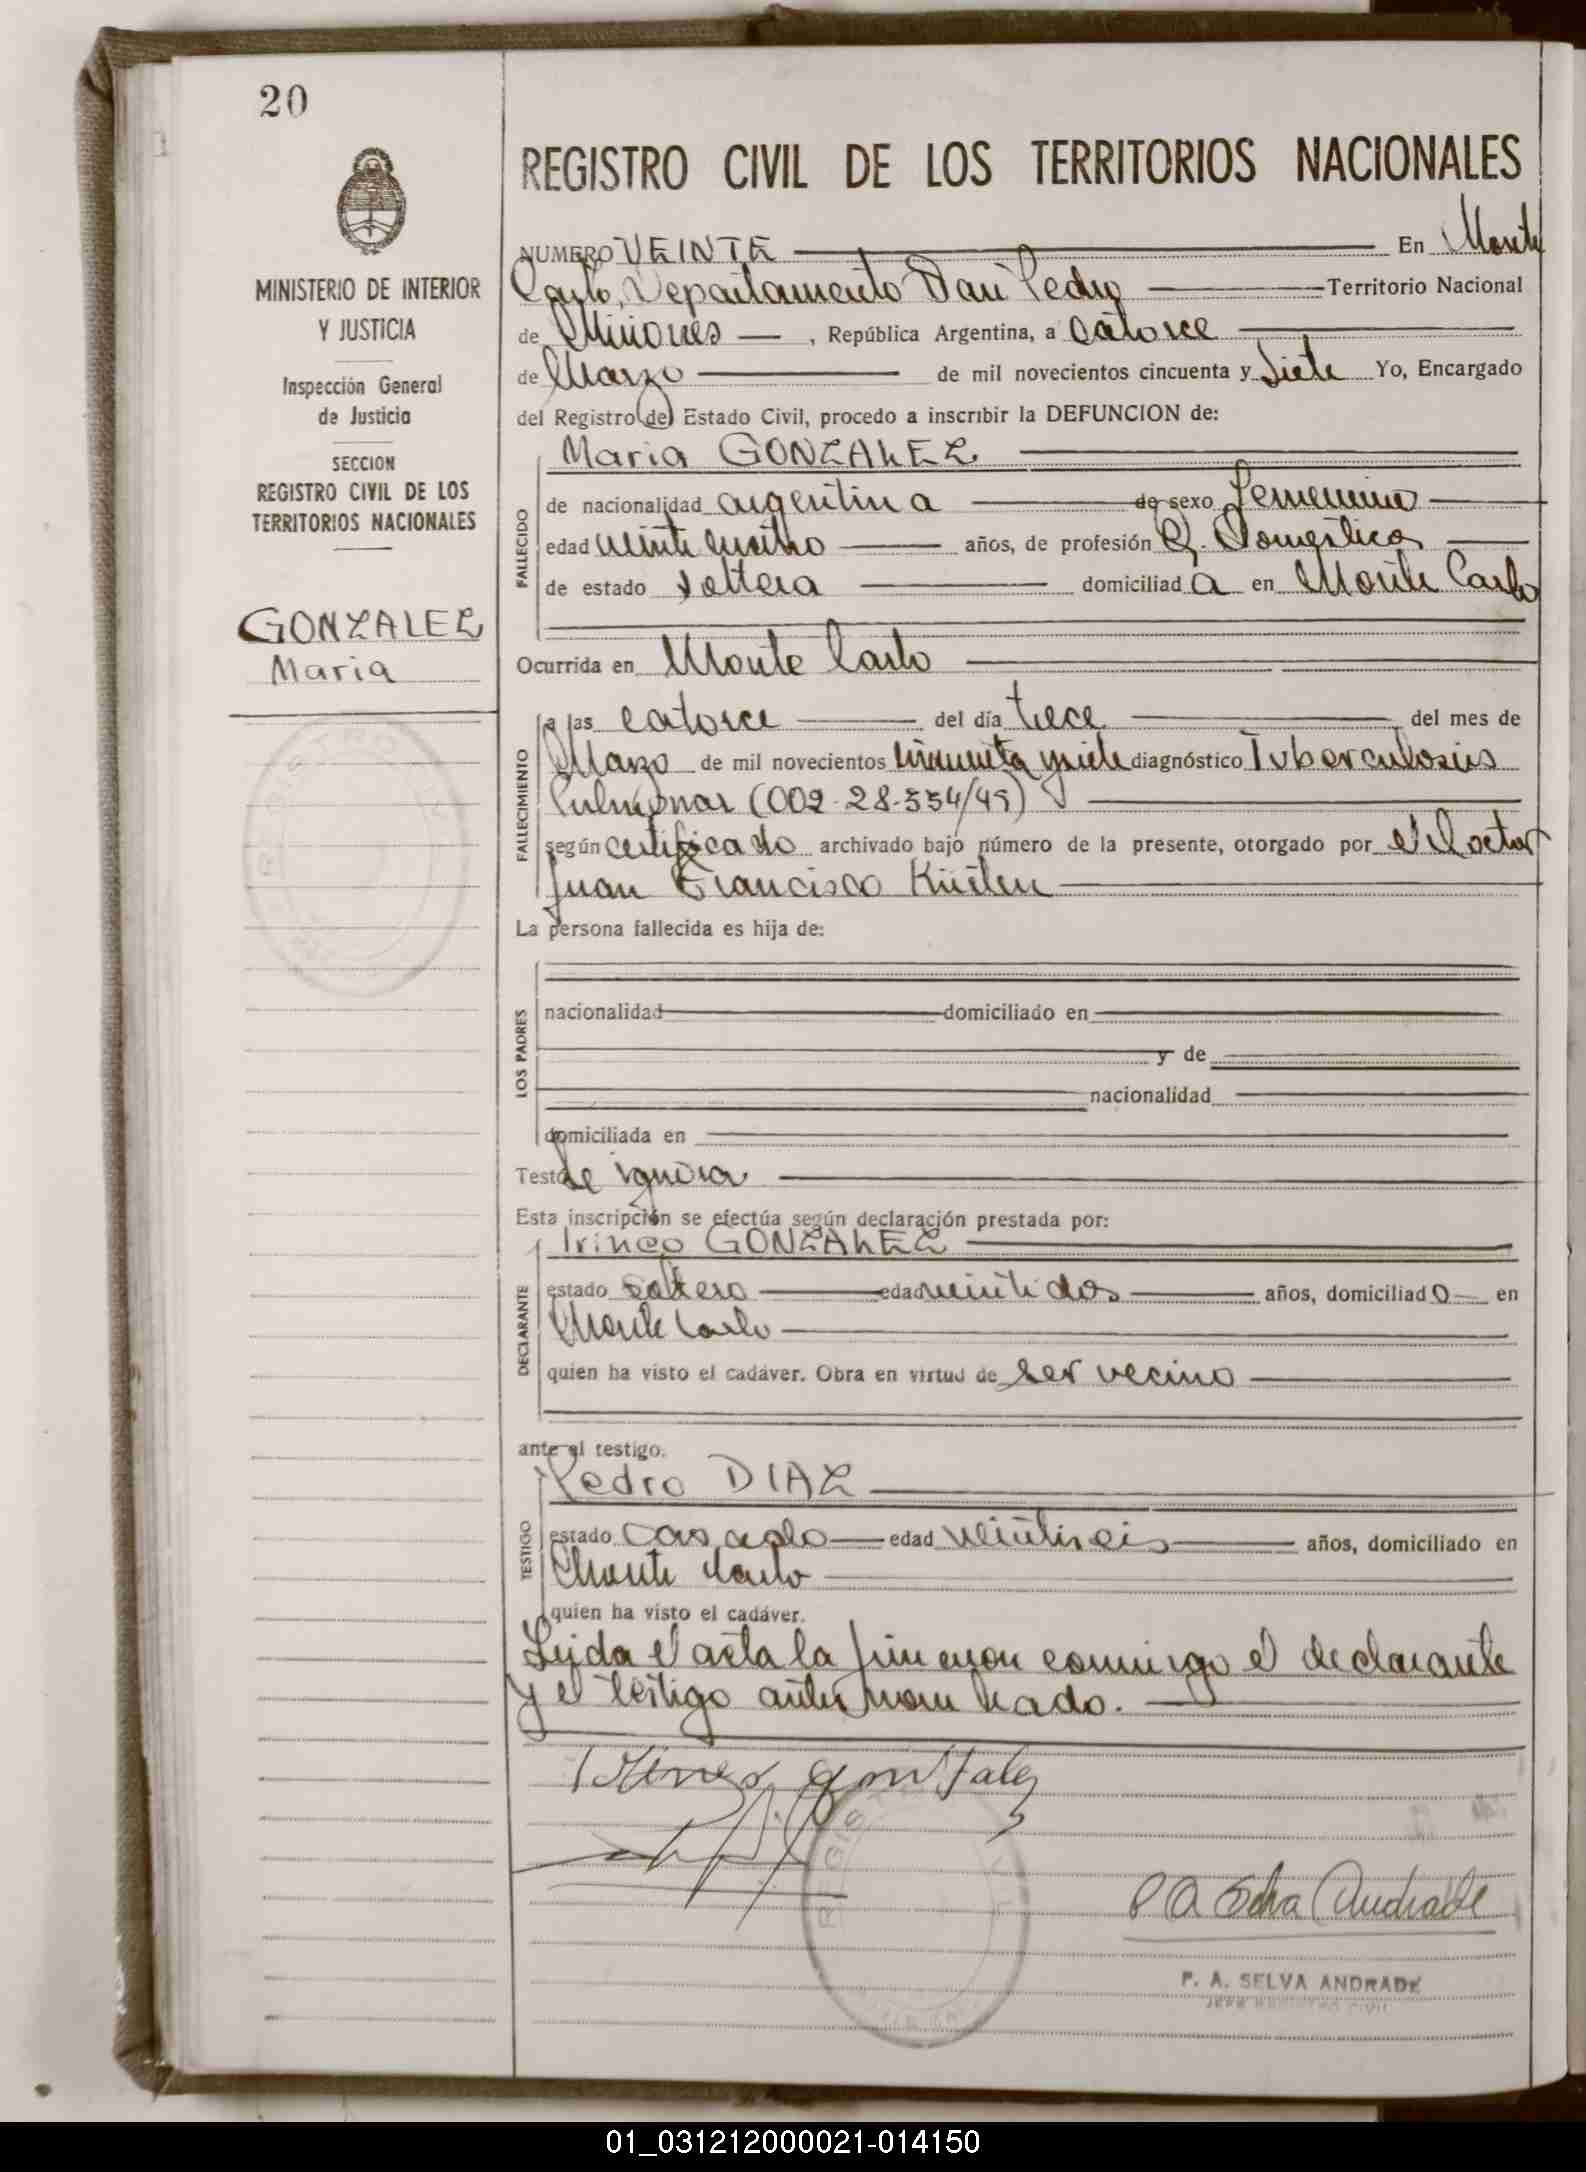 20
MINISTERIO DE INTERIOR
Y JUSTICIA
Inspección General
de Justicia
SECCION
REGISTRO CIVIL DE LOS
TERRITORIOS NACIONALES
GONZALEZ
Maria
REGISTRO CIVIL DE LOS TERRITORIOS NACIONALES
NUMERO VEINTE En Monte
Carlo, Departamento San Pedro Territorio Nacional
de Misiones, República Argentina, a catorce
de Marzo de mil novecientos cincuenta y siete Yo, Encargado
del Registro del Estado Civil, procedo a inscribir la DEFUNCION de:
Maria GONZALEZ
FALLECIDO
de nacionalidad argentina de sexo femenino
edad veinte cuatro años, de profesión Q. Domésticos
de estado soltera domiciliad a en Monte Carlo
Ocurrida en Monte Carlo
FALLECIMIENTO
a las catorce del día trece del mes de
Marzo de mil novecientos cincuenta y siete diagnóstico Tuberculosis
Pulmonar (002-28-554/45)
según certificado archivado bajo número de la presente, otorgado por el Doctor
Juan Francisco
La persona fallecida es hija de:
LOS PADRES
nacionalidad domiciliado en
y de
nacionalidad
domiciliada en
Testó Se ignora
Esta inscripción se efectúa según declaración prestada por:
DECLARANTE
Irineo GONZALEZ
estado soltero edad veintidos años, domiciliad o en
Monte Carlo
quien ha visto el cadáver. Obra en virtud de ser vecino
ante el testigo.
TESTIGO
Pedro DIAZ
estado casado edad veintiseis años, domiciliado en
Monte Carlo
quien ha visto el cadáver.
Leida el acta la firmaron conmigo el declarante
y el testigo antes nombrado.
P A Selva Andrade
P. A. SELVA ANDRADE
JEFE REGISTRO CIVIL
01_031212000021-014150